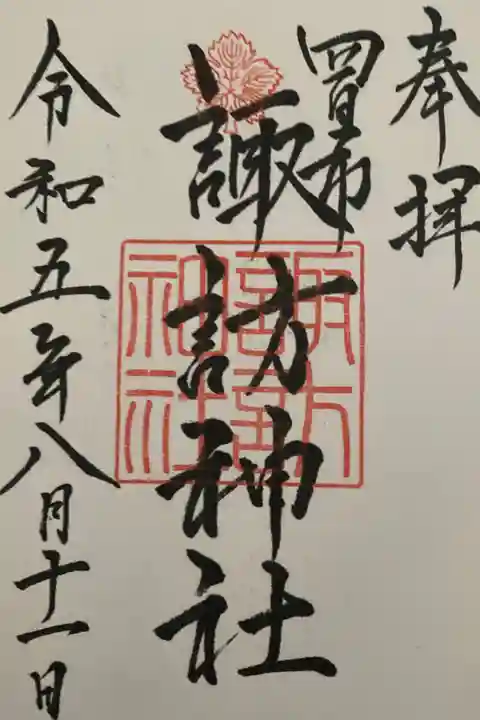 奉拝
四日市
諏訪神社
諏訪
神社
令和五年八月十一日